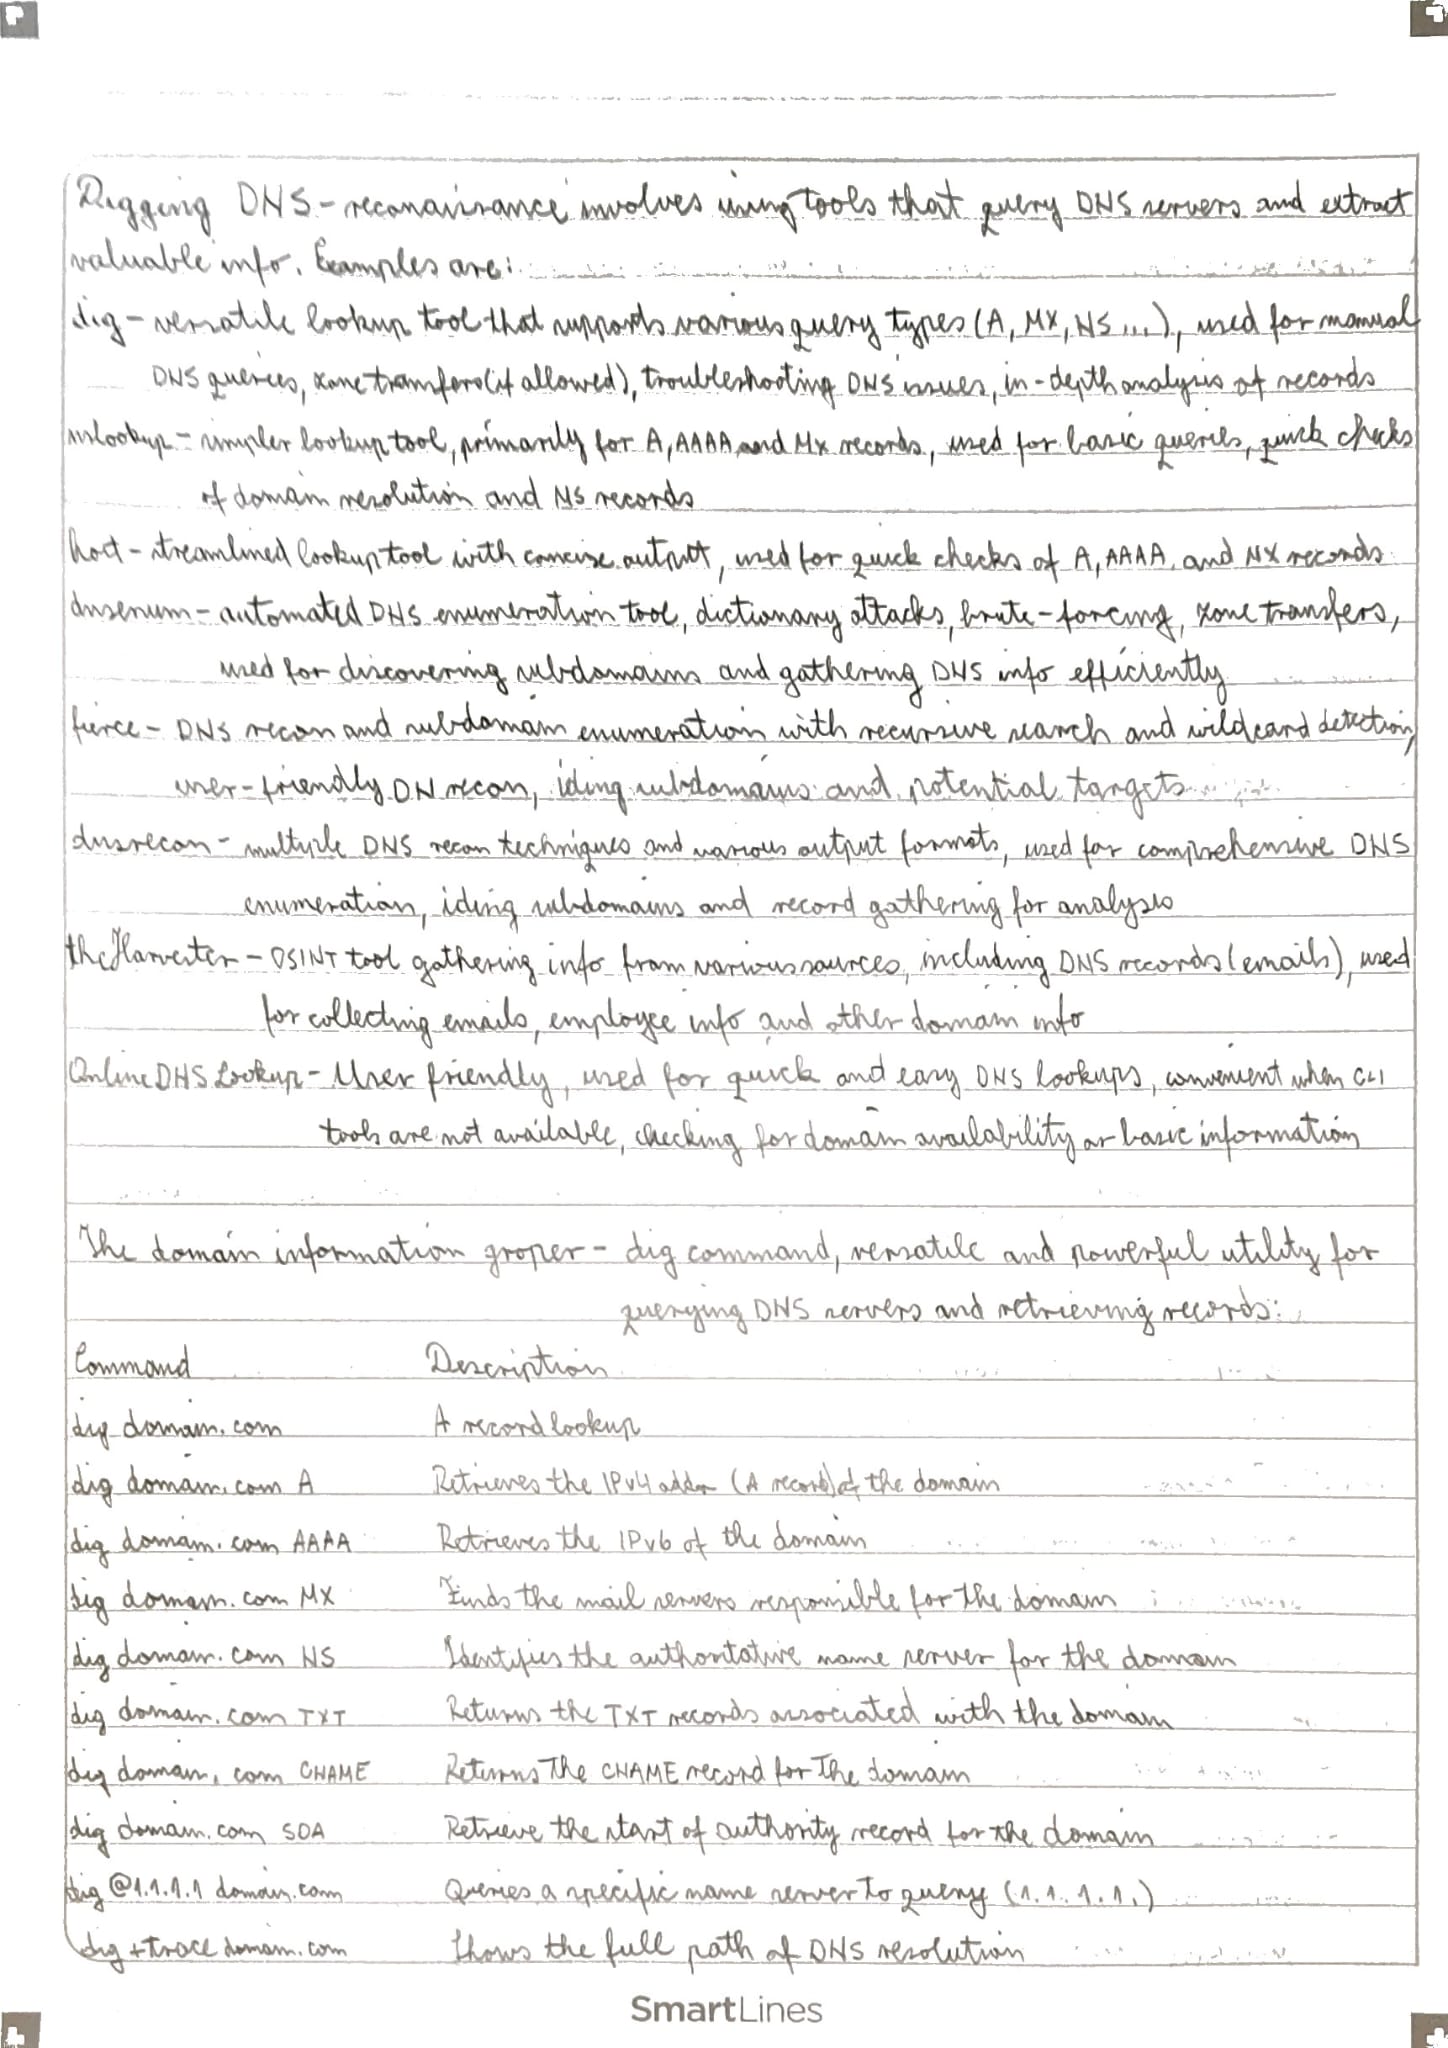 Digging DNS - reconaissance involves using tools that query DNS servers and extract
valuable info. Examples are:
dig - versatile lookup tool that supports various query types (A, MX, NS ...), used for manual
DNS queries, zone transfers (if allowed), troubleshooting DNS issues, in-depth analysis of records
nslookup - simpler lookup tool, primarily for A, AAAA and MX records, used for basic queries, quick checks
of domain resolution and NS records
host - streamlined lookup tool with concise output, used for quick checks of A, AAAA, and MX records
dnsenum - automated DNS enumeration tool, dictionary attacks, brute-forcing, zone transfers,
used for discovering subdomains and gathering DNS info efficiently
fierce - DNS recon and subdomain enumeration with recursive search and wildcard detection,
user-friendly DN recon, iding subdomains and potential targets
dnsrecon - multiple DNS recon techniques and various output formats, used for comprehensive DNS
enumeration, iding subdomains and record gathering for analysis
theHarvester - OSINT tool gathering info from various sources, including DNS records (emails), used
for collecting emails, employee info and other domain info
Online DNS Lookup - User friendly, used for quick and easy DNS lookups, convenient when CLI
tools are not available, checking for domain availability or basic information
The domain information groper - dig command, versatile and powerful utility for
querying DNS servers and retrieving records:
Command Description
dig domain.com A record lookup
dig domain.com A Retrieves the IPv4 addr (A record) of the domain
dig domain.com AAAA Retrieves the IPv6 of the domain
dig domain.com MX Finds the mail servers responsible for the domain
dig domain.com NS Identifies the authoritative name server for the domain
dig domain.com TXT Returns the TXT records associated with the domain
dig domain.com CNAME Returns the CNAME record for the domain
dig domain.com SOA Retrieve the start of authority record for the domain
dig @1.1.1.1 domain.com Queries a specific name server to query (1.1.1.1.)
dig +trace domain.com Shows the full path of DNS resolution
SmartLines